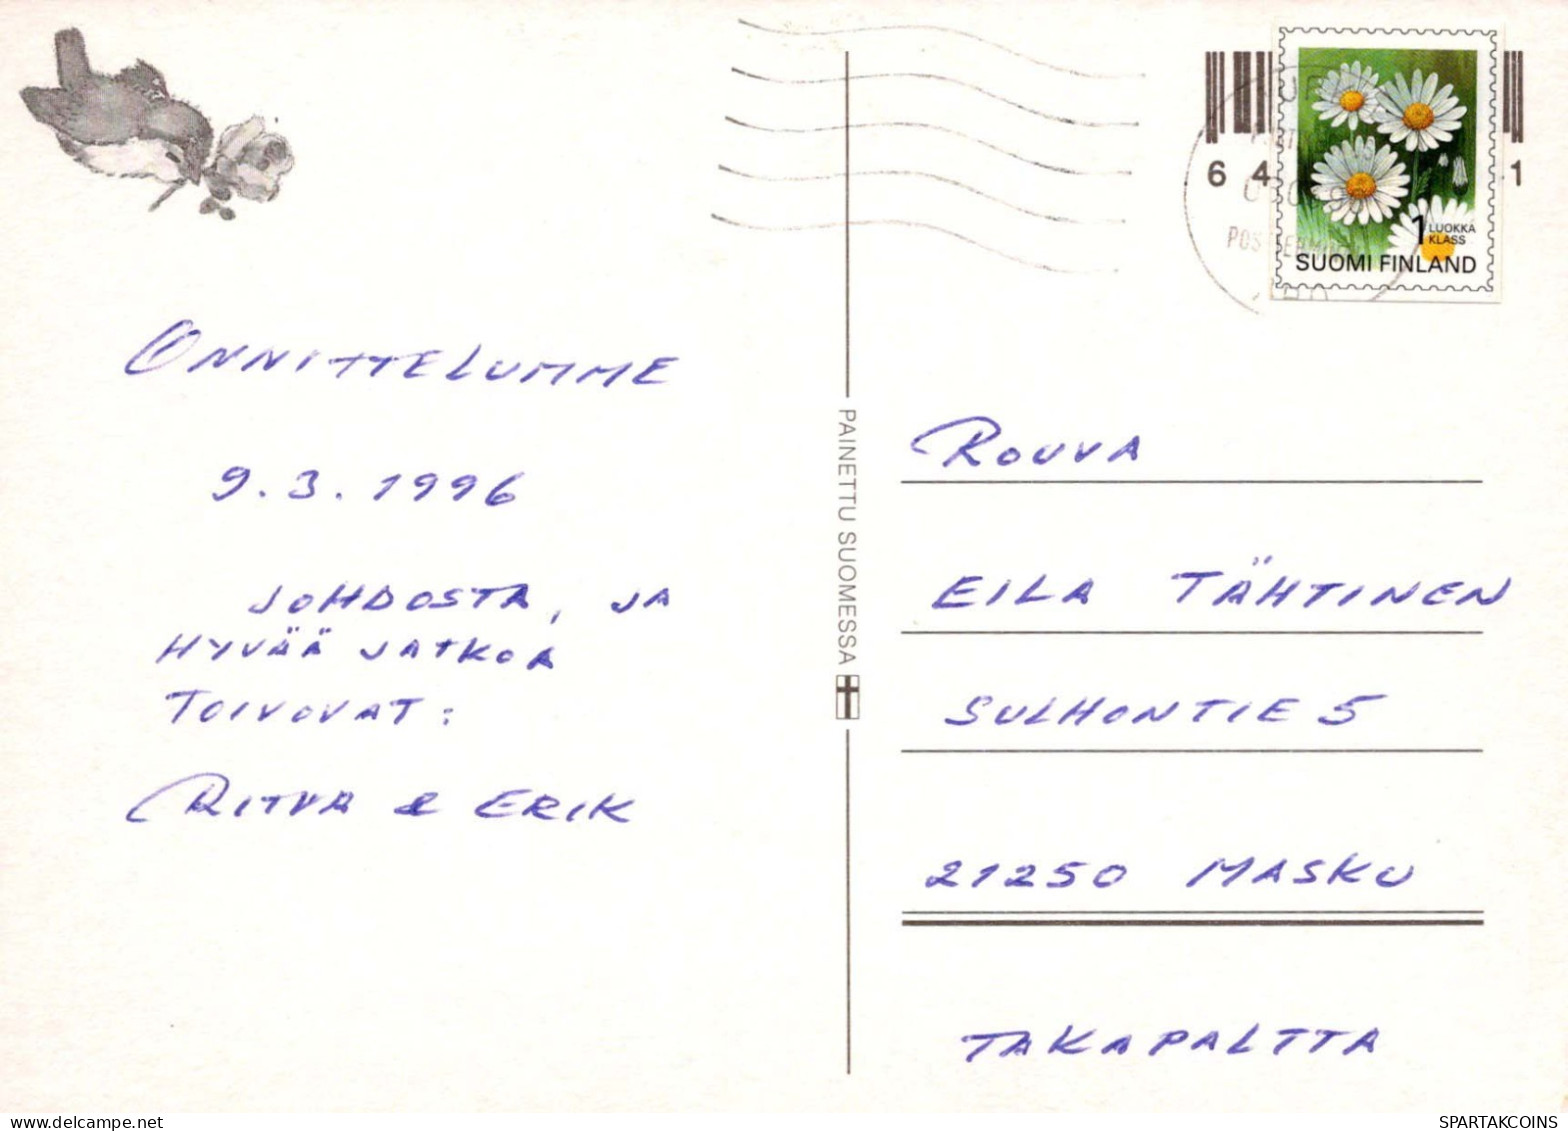 ONNITTELUMME
9.3.1996
JOHDOSTA, JA
HYVÄÄ JATKOA
TOIVOVAT:
RITVA & ERIK
PAINETTU SUOMESSA
6 4 1
1 LUOKKA
KLASS
SUOMI FINLAND
ROUVA
EILA TÄHTINEN
SULHONTIE 5
21250 MASKU
TAKAPALTTA
SPARTAKCOINS